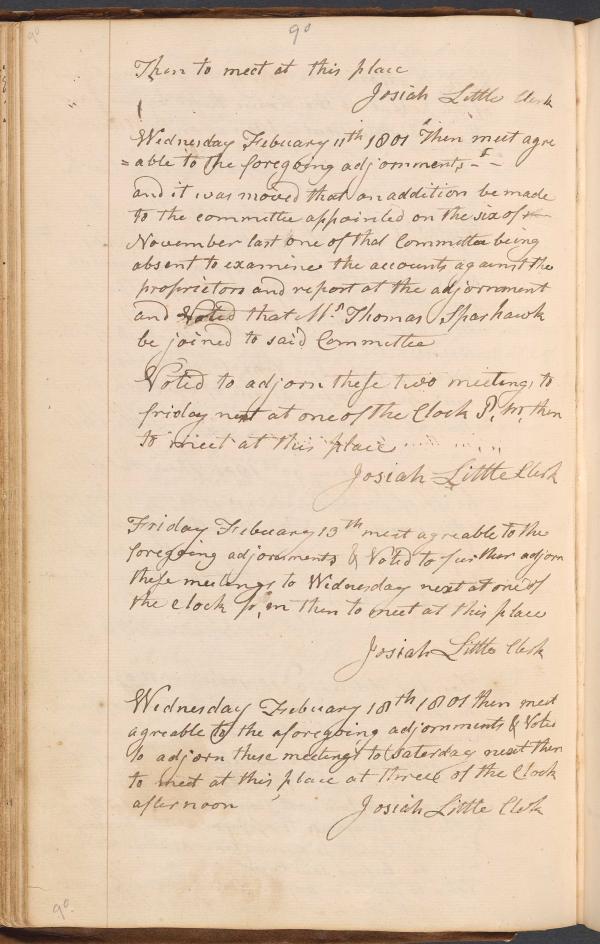 90
90
Then to meet at this place
Josiah Little Clerk
Wednesday February 11th 1801 Then meet agre
=able to the foregoing adjornments
and it was moved that an addition be made
to the committee appointed on the six of
November last one of that Committee being
absent to examine the accounts against the
proprietors and report at the adjornment
and Voted that Mr Thomas Sparhawk
be joined to said Committee
Voted to adjorn these two meetings to
friday next at one of the Clock P. m, then
to meet at this place
Josiah Little Clerk
Friday Febuary 13th meet agreable to the
foregoing adjornments & Voted to further adjorn
these meetings to Wednesday next at one of
the Clock p, m then to meet at this place
Josiah Little Clerk
Wednesday Febuary 18th 1801 then meet
agreable to the aforegoing adjornments & Voted
to adjorn these meetings to Saterday next then
to meet at this place at three of the Clock
afternoon
Josiah Little Clerk
90